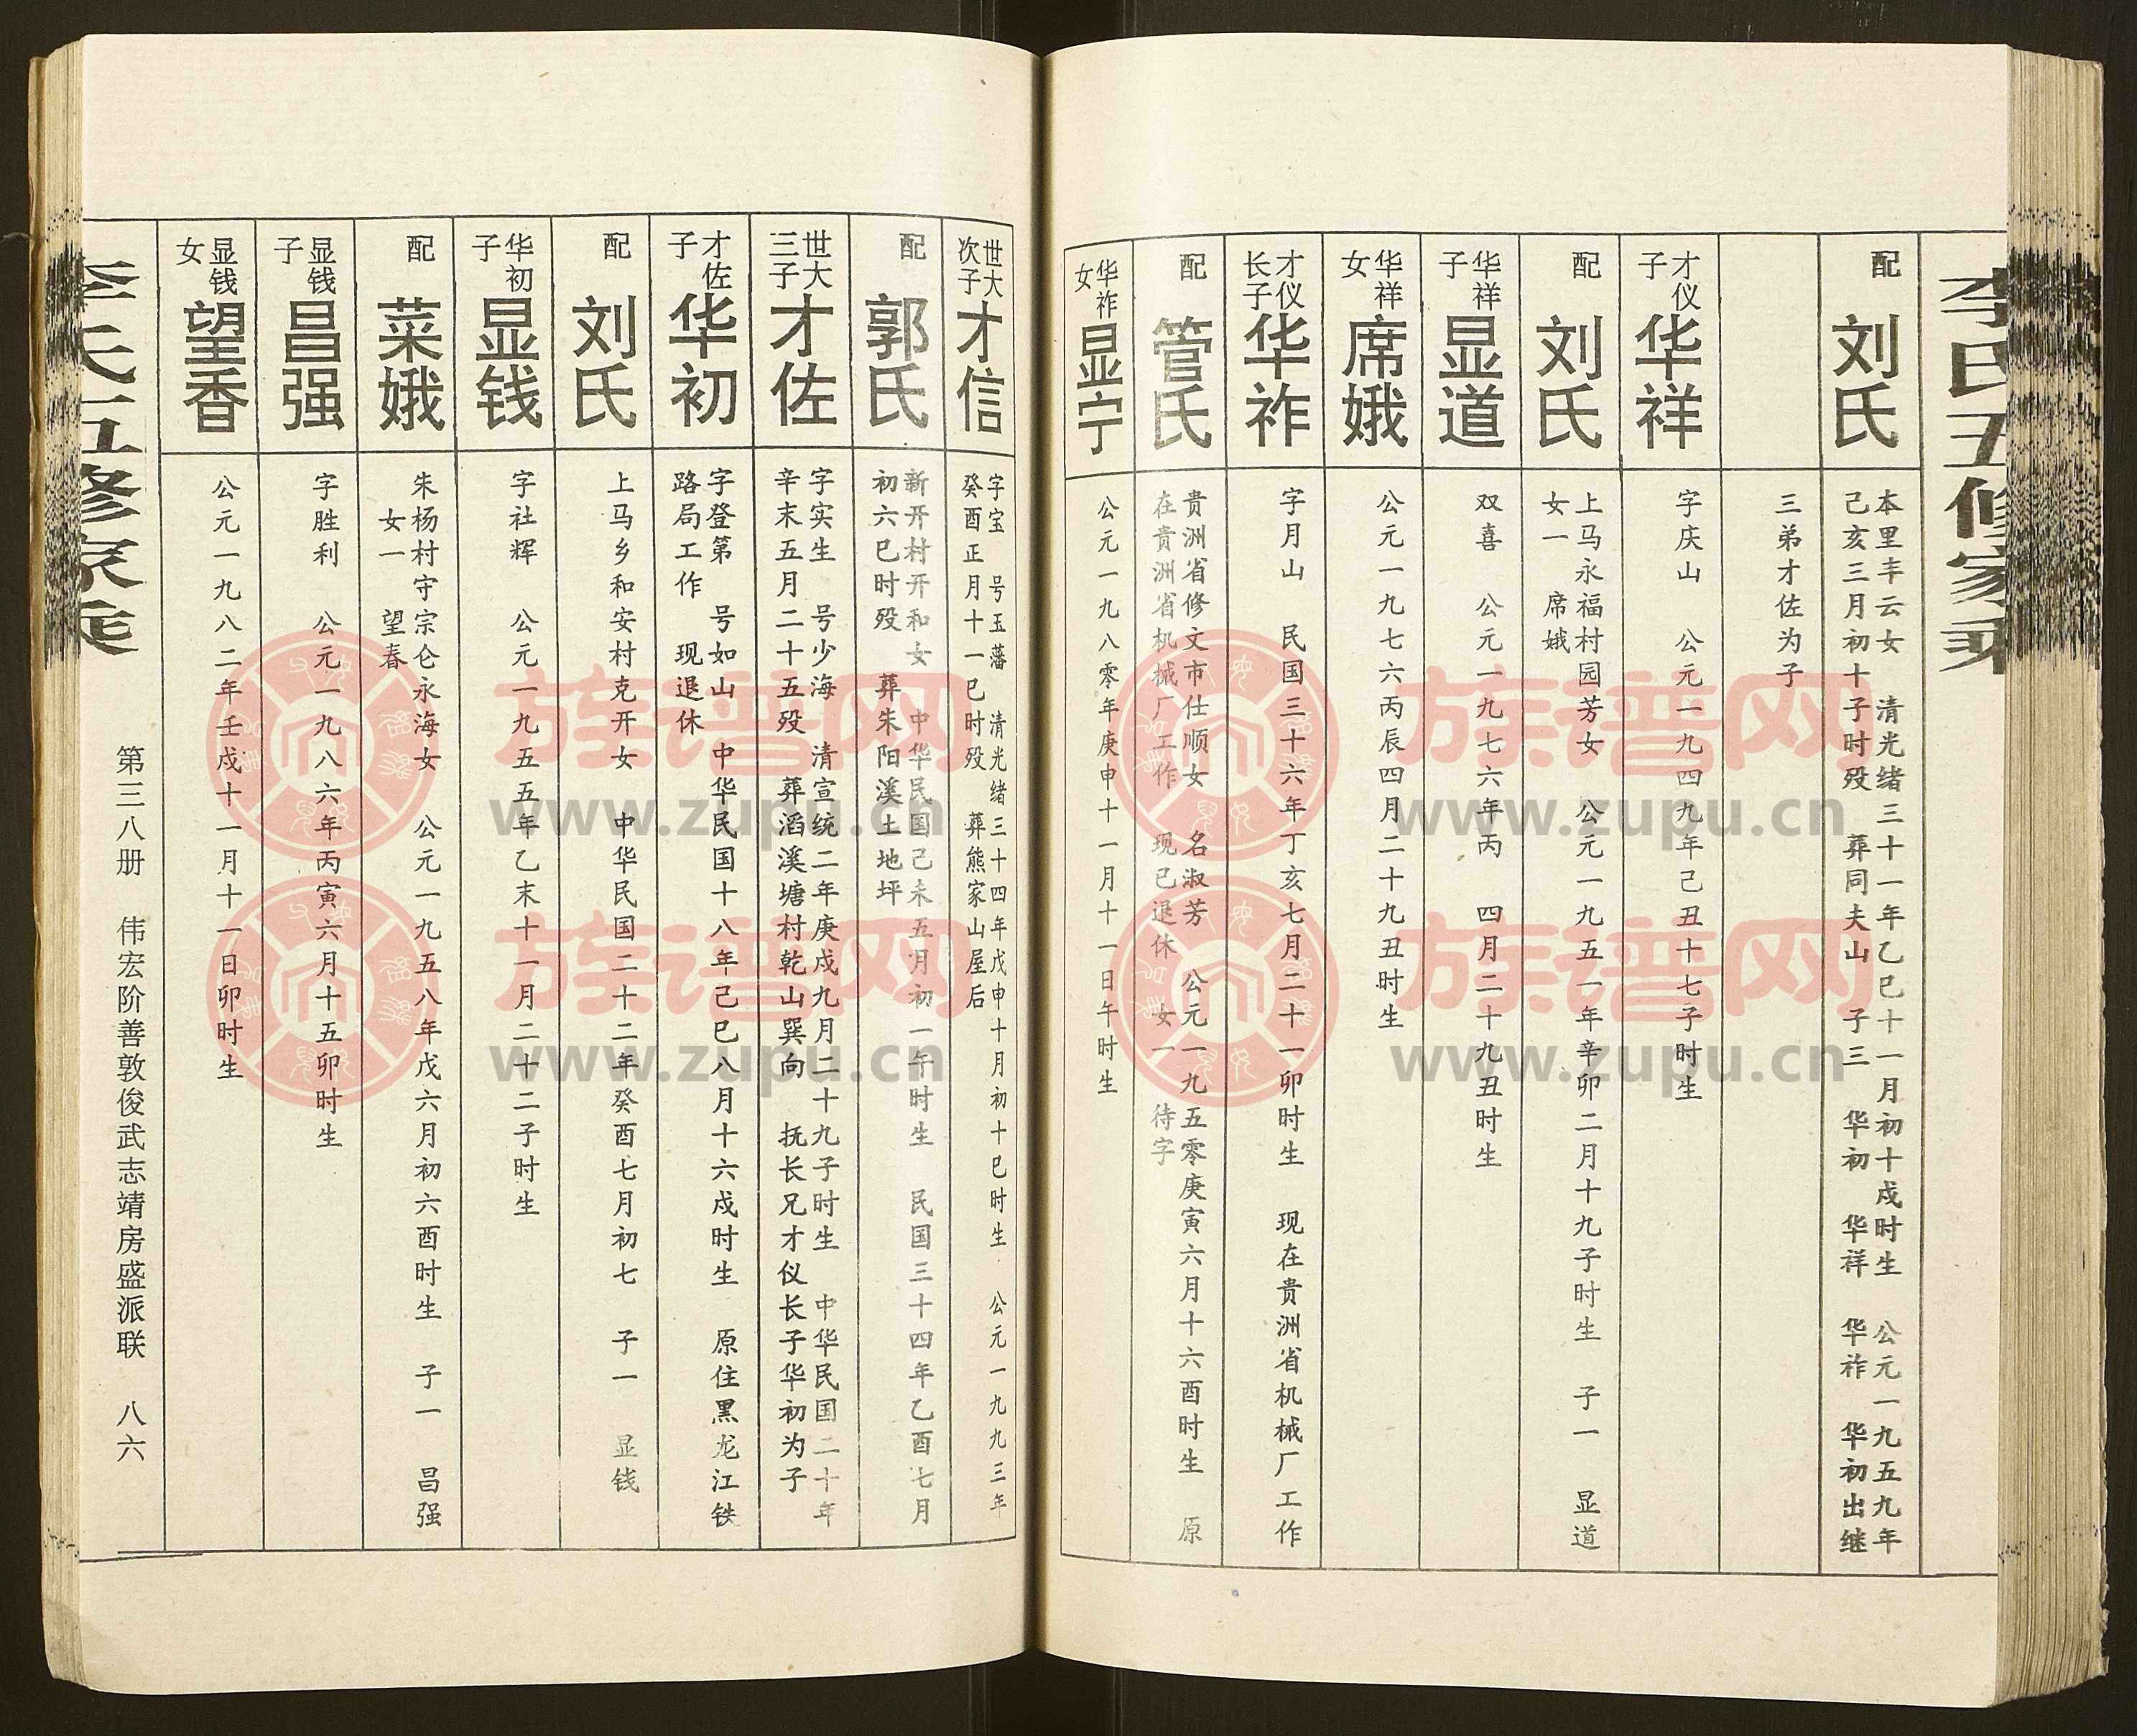 李氏五修家乘
配
刘氏
本里丰云女 清光绪三十一年乙巳十一月初十戍时生 公元一九五九年
己亥三月初十子时殁 葬同夫山 子三 华初 华祥 华祚 华初出继
三弟才佐为子
才仪子
华祥
字庆山 公元一九四九年己丑十七子时生
配
刘氏
上马永福村园芳女 公元一九五一年辛卯二月十九子时生 子一 显道
女一 席娥
华祥子
显道
双喜 公元一九七六年丙 四月二十九丑时生
华祥女
席娥
公元一九七六丙辰四月二十九丑时生
才仪长子
华祚
字月山 民国三十六年丁亥七月二十一卯时生 现在贵洲省机械厂工作
配
管氏
贵洲省修文市仕顺女 名淑芳 公元一九五零庚寅六月十六酉时生 原
在贵洲省机械厂工作 现已退休 女一 待字
华祚女
显宁
公元一九八零年庚申十一月十一日午时生
世大次子
才信
字宝 号玉藩 清光绪三十四年戊申十月初十巳时生 公元一九九三年
癸酉正月十一巳时殁 葬熊家山屋后
配
郭氏
新开村开和女 中华民国己未五月初一午时生 民国三十四年乙酉七月
初六巳时殁 葬朱阳溪土地坪
世大三子
才佐
字实生 号少海 清宣统二年庚戍九月二十九子时生 中华民国二十年
辛未五月二十五殁 葬滔溪塘村乾山巽向 抚长兄才仪长子华初为子
才佐子
华初
字登第 号如山 中华民国十八年己巳八月十六戍时生 原住黑龙江铁
路局工作 现退休
配
刘氏
上马乡和安村克开女 中华民国二十二年癸酉七月初七 子一 显钱
华初子
显钱
字社辉 公元一九五五年乙未十一月二十二子时生
配
菜娥
朱杨村守宗仑永海女 公元一九五八年戊六月初六酉时生 子一 昌强
女一 望春
显钱子
昌强
字胜利 公元一九八六年丙寅六月十五卯时生
显钱女
望香
公元一九八二年壬戍十一月十一日卯时生
李氏五修家乘
第三八册 伟宏阶善敦俊武志靖房盛派联 八六
族谱网
www.zupu.cn
族谱网
www.zupu.cn
族谱网
www.zupu.cn
族谱网
www.zupu.cn